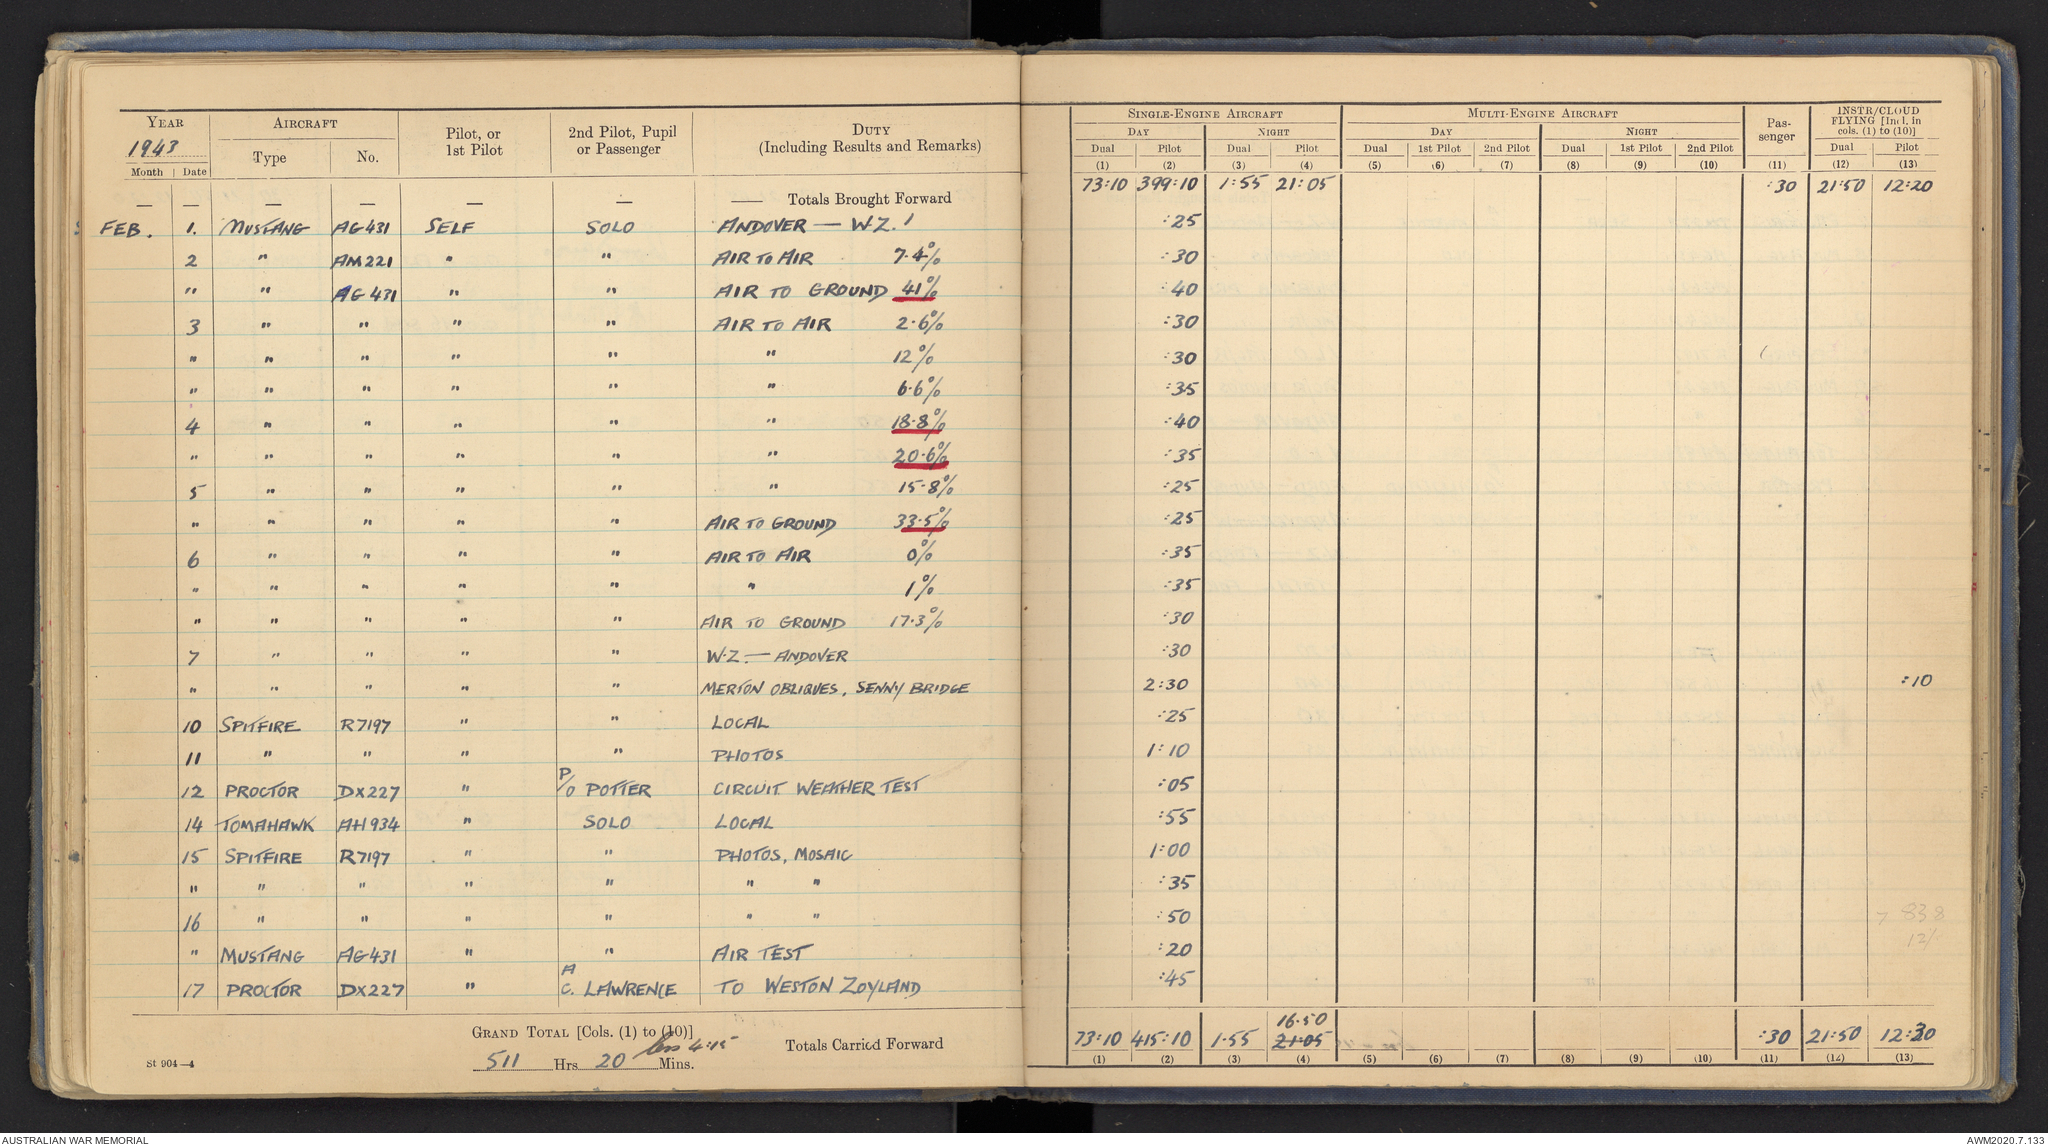 YEAR AIRCRAFT Pilot, or 1st Pilot 2nd Pilot, Pupil or Passenger DUTY (Including Results and Remarks) SINGLE-ENGINE AIRCRAFT MULTI-ENGINE AIRCRAFT Pas-senger INSTR/CLOUD FLYING [Incl. in cols. (1) to (10)]
1943 Type No. DAY NIGHT DAY NIGHT
Month Date Dual Pilot Dual Pilot Dual 1st Pilot 2nd Pilot Dual 1st Pilot 2nd Pilot Dual Pilot
(1) (2) (3) (4) (5) (6) (7) (8) (9) (10) (11) (12) (13)
— — — — — — —— Totals Brought Forward 73:10 399:10 1:55 21:05 :30 21:50 12:20
FEB. 1. MUSTANG AG431 SELF SOLO ANDOVER — W.Z. ! :25
2 " AM221 " " AIR TO AIR 7.4% :30
" " AG431 " " AIR TO GROUND 41% :40
3 " " " " AIR TO AIR 2.6% :30
" " " " " " 12% :30
" " " " " " 6.6% :35
4 " " " " " 18.8% :40
" " " " " " 20.6% :35
5 " " " " " 15.8% :25
" " " " " AIR TO GROUND 33.5% :25
6 " " " " AIR TO AIR 0% :35
" " " " " " 1% :35
" " " " " AIR TO GROUND 17.3% :30
7 " " " " W.Z. — ANDOVER :30
" " " " " MERTON OBLIQUES, SENNY BRIDGE 2:30 :10
10 SPITFIRE R7197 " " LOCAL :25
11 " " " " PHOTOS 1:10
12 PROCTOR DX227 " P/O POTTER CIRCUIT WEATHER TEST :05
14 TOMAHAWK AH934 " SOLO LOCAL :55
15 SPITFIRE R7197 " " PHOTOS, MOSAIC 1:00
" " " " " " " :35
16 " " " " " " :50
" MUSTANG AG431 " " AIR TEST :20
17 PROCTOR DX227 " A C. LAWRENCE TO WESTON ZOYLAND :45
GRAND TOTAL [Cols. (1) to (10)] 16.50
511 Hrs 20 Mins. less 4:15 Totals Carried Forward 73:10 415:10 1.55 21.05 :30 21:50 12:30
(1) (2) (3) (4) (5) (6) (7) (8) (9) (10) (11) (12) (13)
St 904—4
AUSTRALIAN WAR MEMORIAL AWM2020.7.133